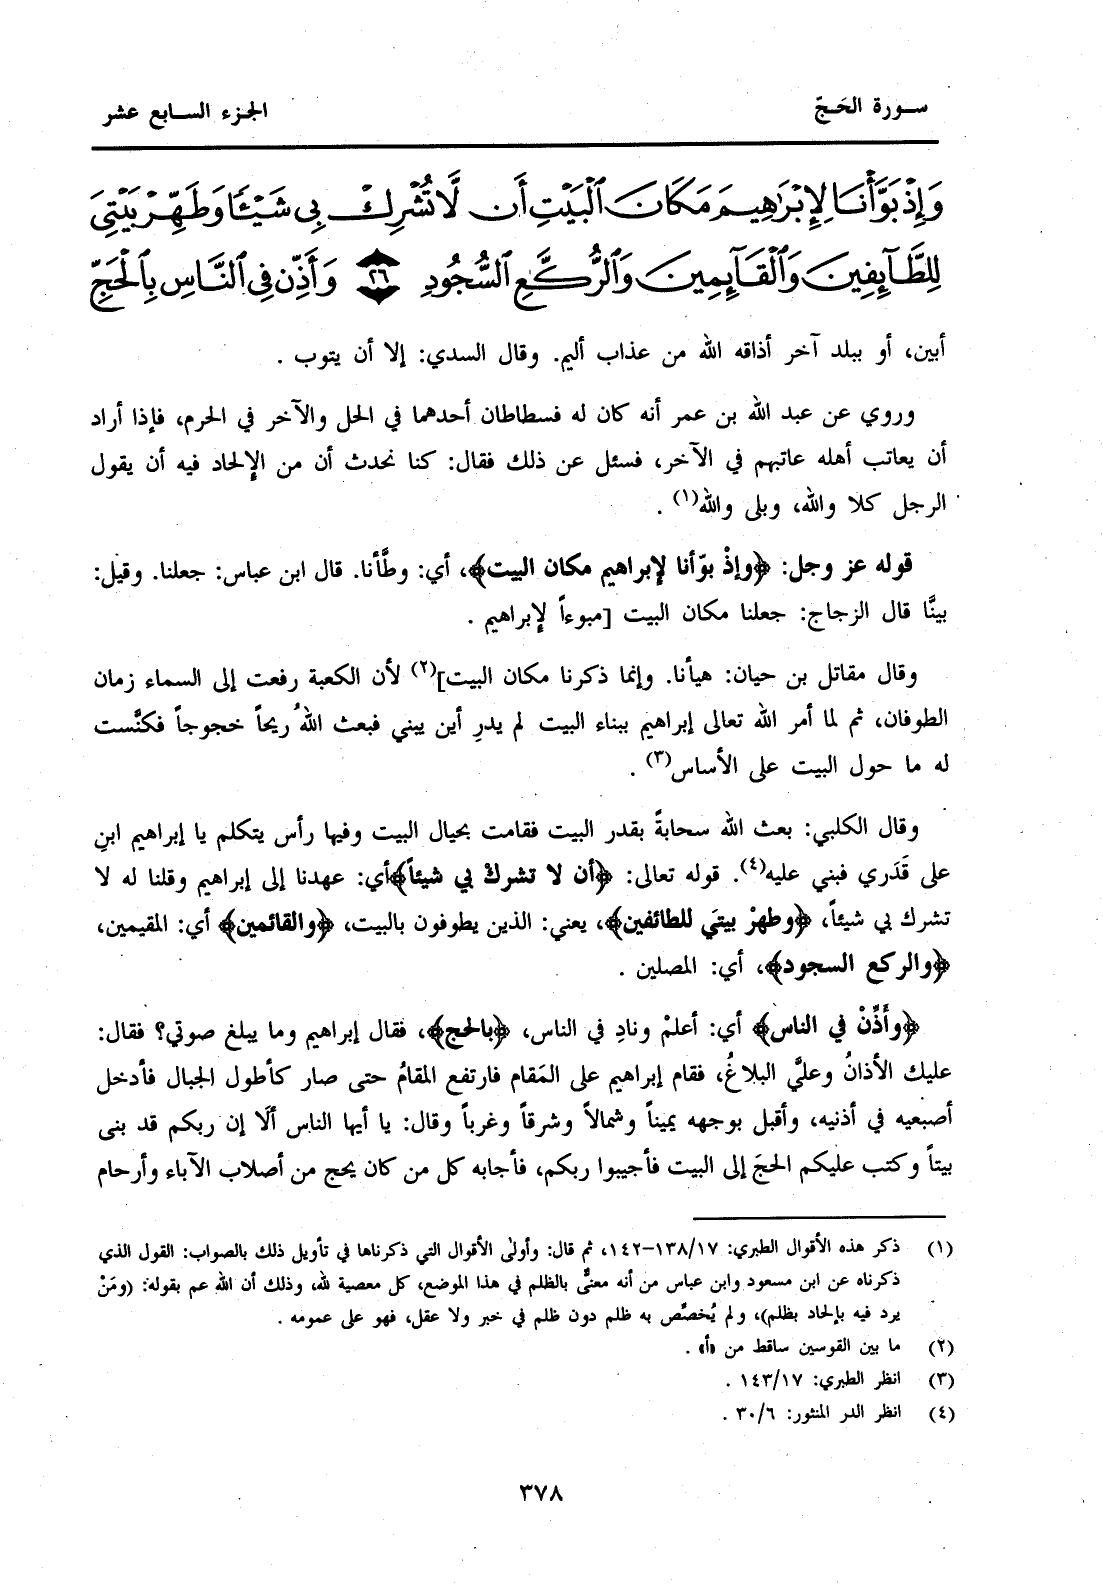 سورة الحَجّ
الجزء السابع عشر
وَإِذْ بَوَّأْنَا لِإِبْرَٰهِيمَ مَكَانَ ٱلْبَيْتِ أَن لَّا تُشْرِكْ بِى شَيْـًٔا وَطَهِّرْ بَيْتِىَ
لِلطَّآئِفِينَ وَٱلْقَآئِمِينَ وَٱلرُّكَّعِ ٱلسُّجُودِ ٢٦ وَأَذِّن فِى ٱلنَّاسِ بِٱلْحَجِّ
أبين، أو ببلد آخر أذاقه الله من عذاب أليم. وقال السدي: إلا أن يتوب .
وروي عن عبد الله بن عمر أنه كان له فسطاطان أحدهما في الحل والآخر في الحرم، فإذا أراد
أن يعاتب أهله عاتبهم في الآخر، فسئل عن ذلك فقال: كنا نحدث أن من الإلحاد فيه أن يقول
الرجل كلا والله، وبلى والله(١) .
قوله عز وجل: ﴿وإذْ بوّأنا لإبراهيم مكان البيت﴾، أي: وطَّأنا. قال ابن عباس: جعلنا. وقيل:
بينَّا قال الزجاج: جعلنا مكان البيت [مبوءاً لإبراهيم .
وقال مقاتل بن حيان: هيأنا. وإنما ذكرنا مكان البيت](٢) لأن الكعبة رفعت إلى السماء زمان
الطوفان، ثم لما أمر الله تعالى إبراهيم ببناء البيت لم يدرِ أين يبني فبعث اللهُ ريحاً خجوجاً فكنَّست
له ما حول البيت على الأساس(٣) .
وقال الكلبي: بعث الله سحابةً بقدر البيت فقامت بحيال البيت وفيها رأس يتكلم يا إبراهيم ابنِ
على قَدَري فبني عليه(٤). قوله تعالى: ﴿أن لا تشركْ بي شيئاً﴾أي: عهدنا إلى إبراهيم وقلنا له لا
تشرك بي شيئاً، ﴿وطهرْ بيتَي للطائفين﴾، يعني: الذين يطوفون بالبيت، ﴿والقائمين﴾ أي: المقيمين،
﴿والركع السجود﴾، أي: المصلين .
﴿وأَذِّنْ في الناس﴾ أي: أعلمْ ونادِ في الناس، ﴿بالحج﴾، فقال إبراهيم وما يبلغ صوتي؟ فقال:
عليك الأذانُ وعليَّ البلاغُ، فقام إبراهيم على المَقام فارتفع المقامُ حتى صار كأطول الجبال فأدخل
أصبعيه في أذنيه، وأقبل بوجهه يميناً وشمالاً وشرقاً وغرباً وقال: يا أيها الناس ألَا إن ربكم قد بنى
بيتاً وكتب عليكم الحجَ إلى البيت فأجيبوا ربكم، فأجابه كل من كان يحج من أصلاب الآباء وأرحام
(١) ذكر هذه الأقوال الطبري: ١٣٨/١٧-١٤٢، ثم قال: وأولى الأقوال التي ذكرناها في تأويل ذلك بالصواب: القول الذي
ذكرناه عن ابن مسعود وابن عباس من أنه معنيٌّ بالظلم في هذا الموضع، كل معصية لله، وذلك أن الله عم بقوله: (ومَنْ
يرد فيه بإلحاد بظلم)، ولم يُخصِّص به ظلم دون ظلم في خبر ولا عقل، فهو على عمومه .
(٢) ما بين القوسين ساقط من «أ» .
(٣) انظر الطبري: ١٤٣/١٧ .
(٤) انظر الدر المنثور: ٣٠/٦ .
٣٧٨